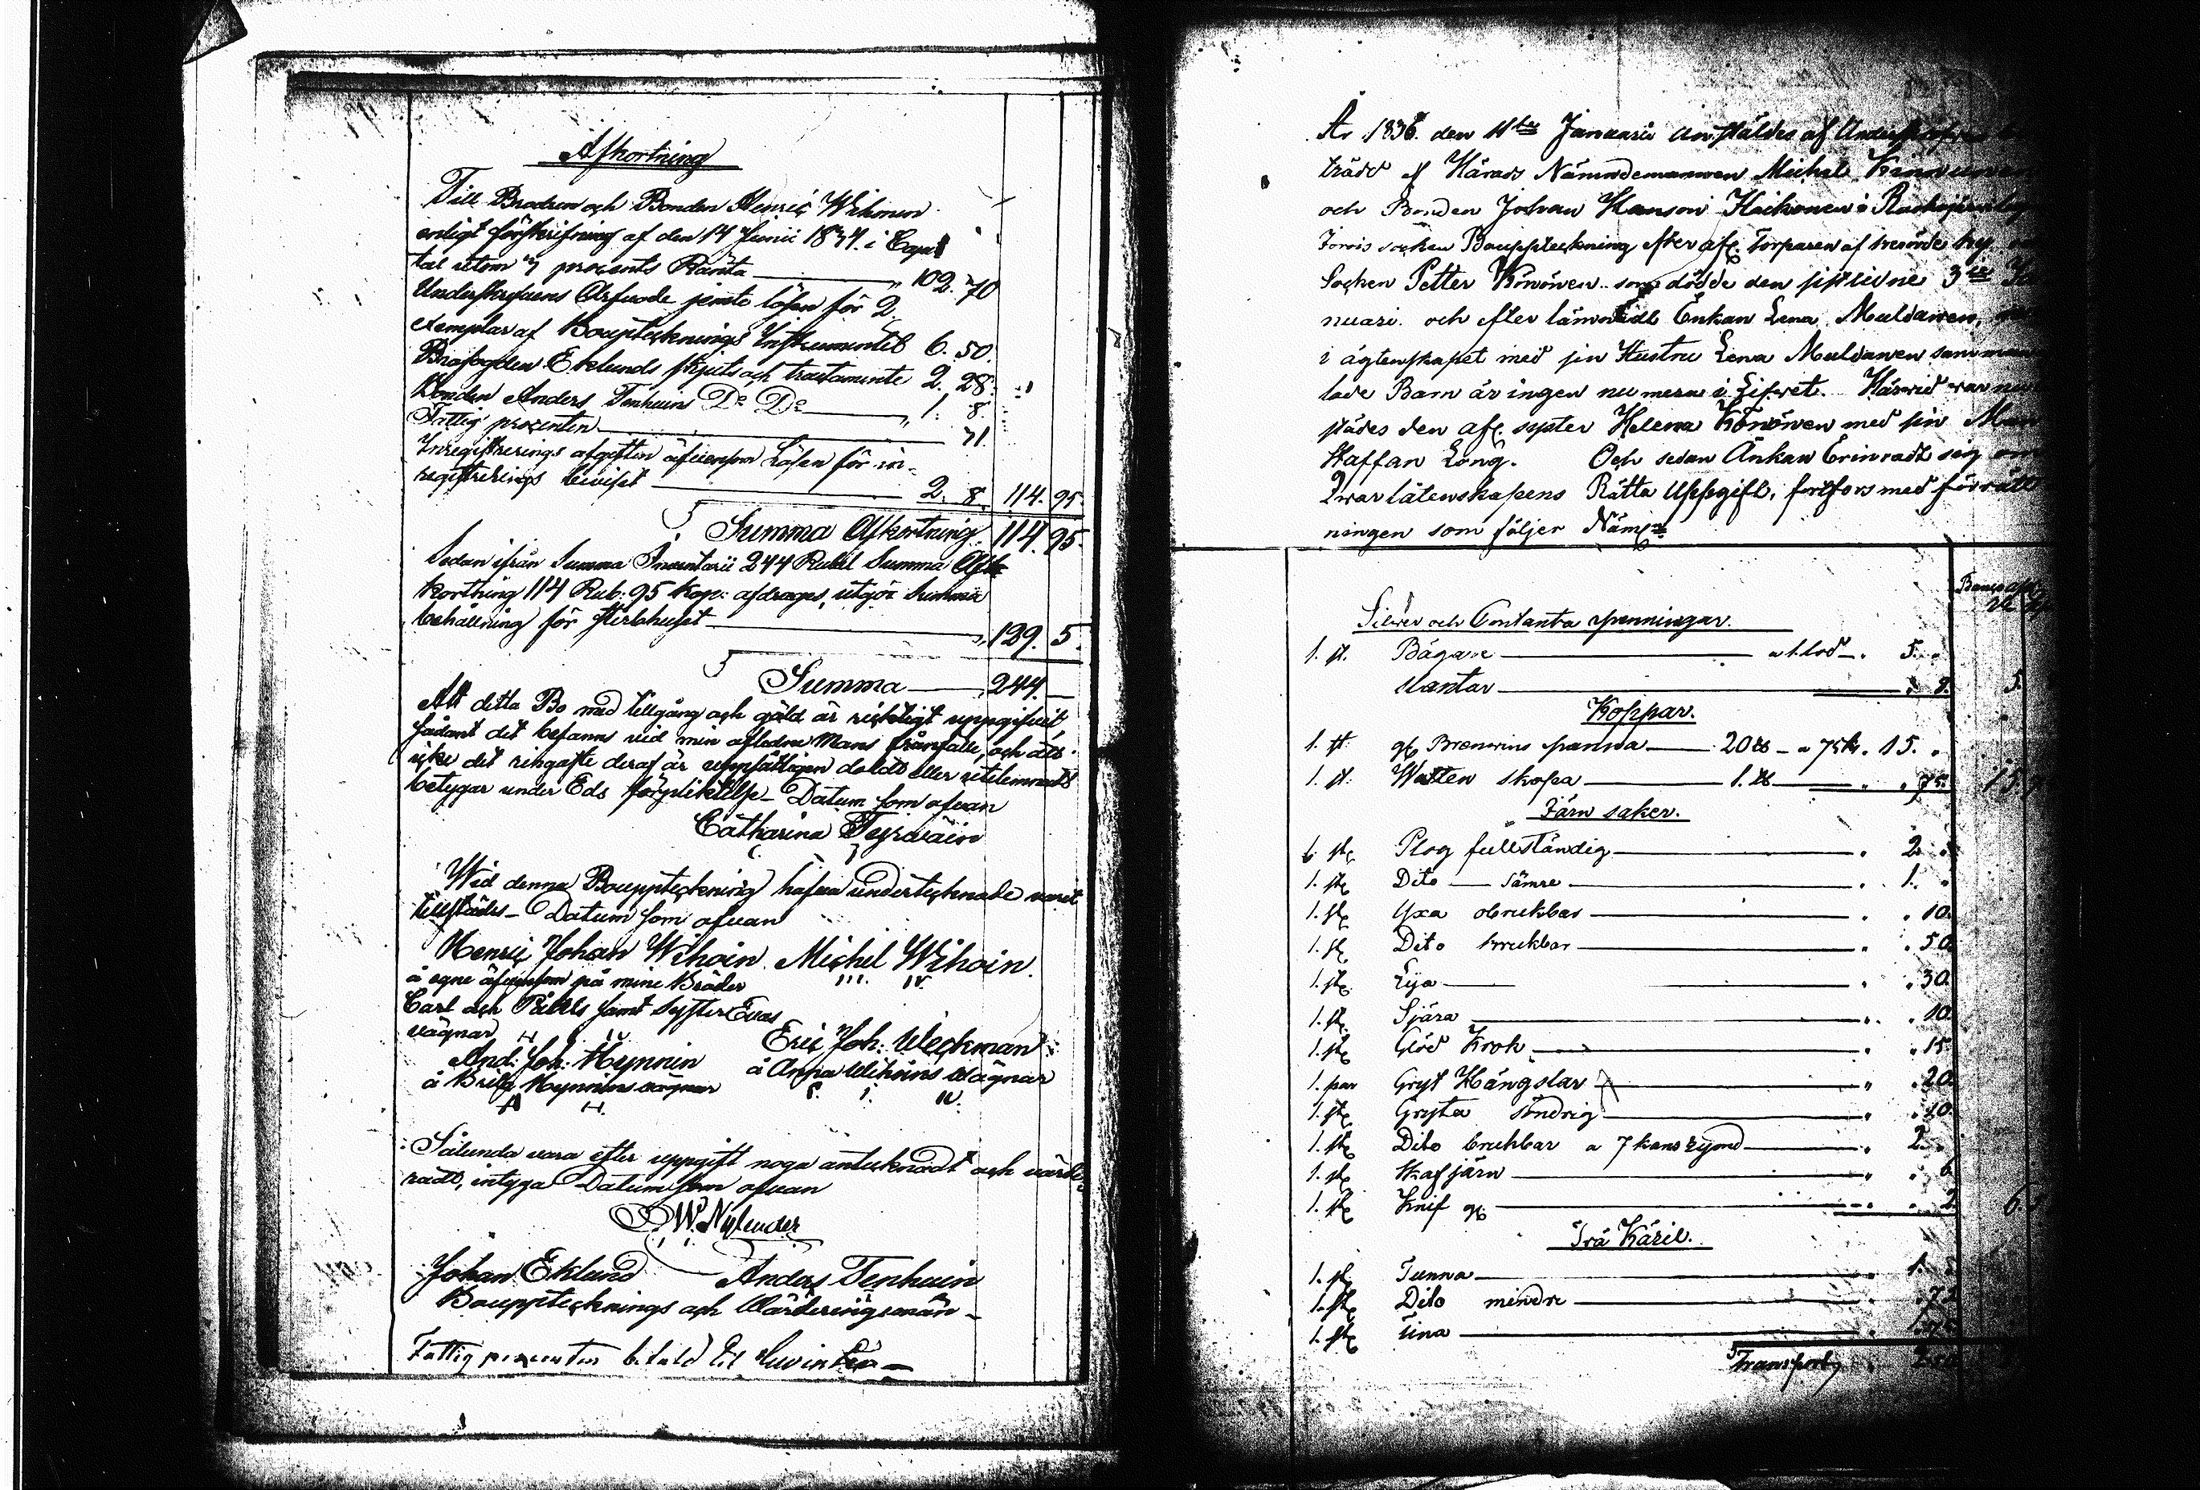 Afkortning
Till Brodren och Bonden Henric Wihonen
enligt förskrifning af den 14 Junii 1834. i Capi
tal utom 7 procents Ränta 102. 70
Underskrefvens Arfvode jemte lösen för 2
exemplar af Bouptecknings Instrumentet 6. 50.
Brofogden Eklunds skjuts och tractamente 2. 28.
Bonden Anders Tenhuins Do Do 1. 8
Fattig procenten 71
Inregistrerings afgiften äfvensom Lösen för in-
registrerings beviset 2. 8. 114. 95
Summa Afkortning 114. 95.
Sedan ifrån Summa Inventarii 244 Rubel Summa Af
kortning 114 Rub. 95 Kop: afdrages, utgör Summa
behållning för sterbhuset 129. 5.
Summa 244.
Att detta Bo med tillgång och gäld är ricktigt uppgifvit,
sådant det befanns vid min aflidne Mans frånfälle, och att
icke det ringaste deraf är uppsåtligen doldt eller utelemnadt
betygar under Eds förpliktelse - Datum som ofvan
Catharina
Wid denna Bouppteckning hafva undertecknade varit
tillstädes - Datum som ofvan
Henric Johan Wihoin. Michel Wihoin.
å egne äfvensom på mine Bröder
Carl och Påhls samt Syster Evas
vägnar
Eric Joh: Weckman
And: Joh: Hynnin å Anna Wihoins Wägnar
å Brita Hynnins vägnar
Sålunda vara efter uppgift noga antecknadt och värde-
radt, intyga Datum som ofvan
W. Nylender
Johan Eklund Anders Tenhuin
Bouppteknings och Värderingsmän -
Fattig procenten betald til
År 1836. den 11te Januarii anstäldes af
träde af Härads Nämndemannen Michel
och Bonden Johan Hanson Haikonen i
Jorois socken Bouppteckning efter afl. Torparen af
Socken Petter Könönen som dödde den sistledne 3ie
nuari. och efter lämnadt Enkan Lena Muldanen,
i ägtenskapet med sin Hustru Lena Muldanen samman
lade Barn är ingen nu mera i Lifvet. Härvid var
städes den afl. syster Helena Könönen med sin Man
Staffan Long. Och sedan Änkan Erinradt sig om
Qvarlåtenskapens Rätta Uppgift, fortfors med förrätt
ningen som följer Näml:
Silver och Contanta penningar.
1. st. Bägare a 1. lod 5.
Kantar 5.
Koppar.
1. st. gl. Brenvins panna 20 ℔ - a 75 k. 15.
1. st. Watten skopa 1. ℔ 75. 15.
Järn saker.
1. st. Plog fullständig 2.
1. st. Dito sämre 1.
1. st. Yxa obrukbar 10.
1. st. Dito brukbar 50.
1. st. Lija 30.
1. st. Sjära 10.
1. st. Glöd Krok 15.
1. par Gryt Hängslar 20.
1. st. Gryta söndrig
1. st. Dito brukbar a 7 kans rymd 2.
1. st. Skafjärn 6.
1. st. Knif gl. 2. 6.
Trä Käril.
1. st. Tunna 1.
1. st. Dito mindre
1. st. Tina
Transport,